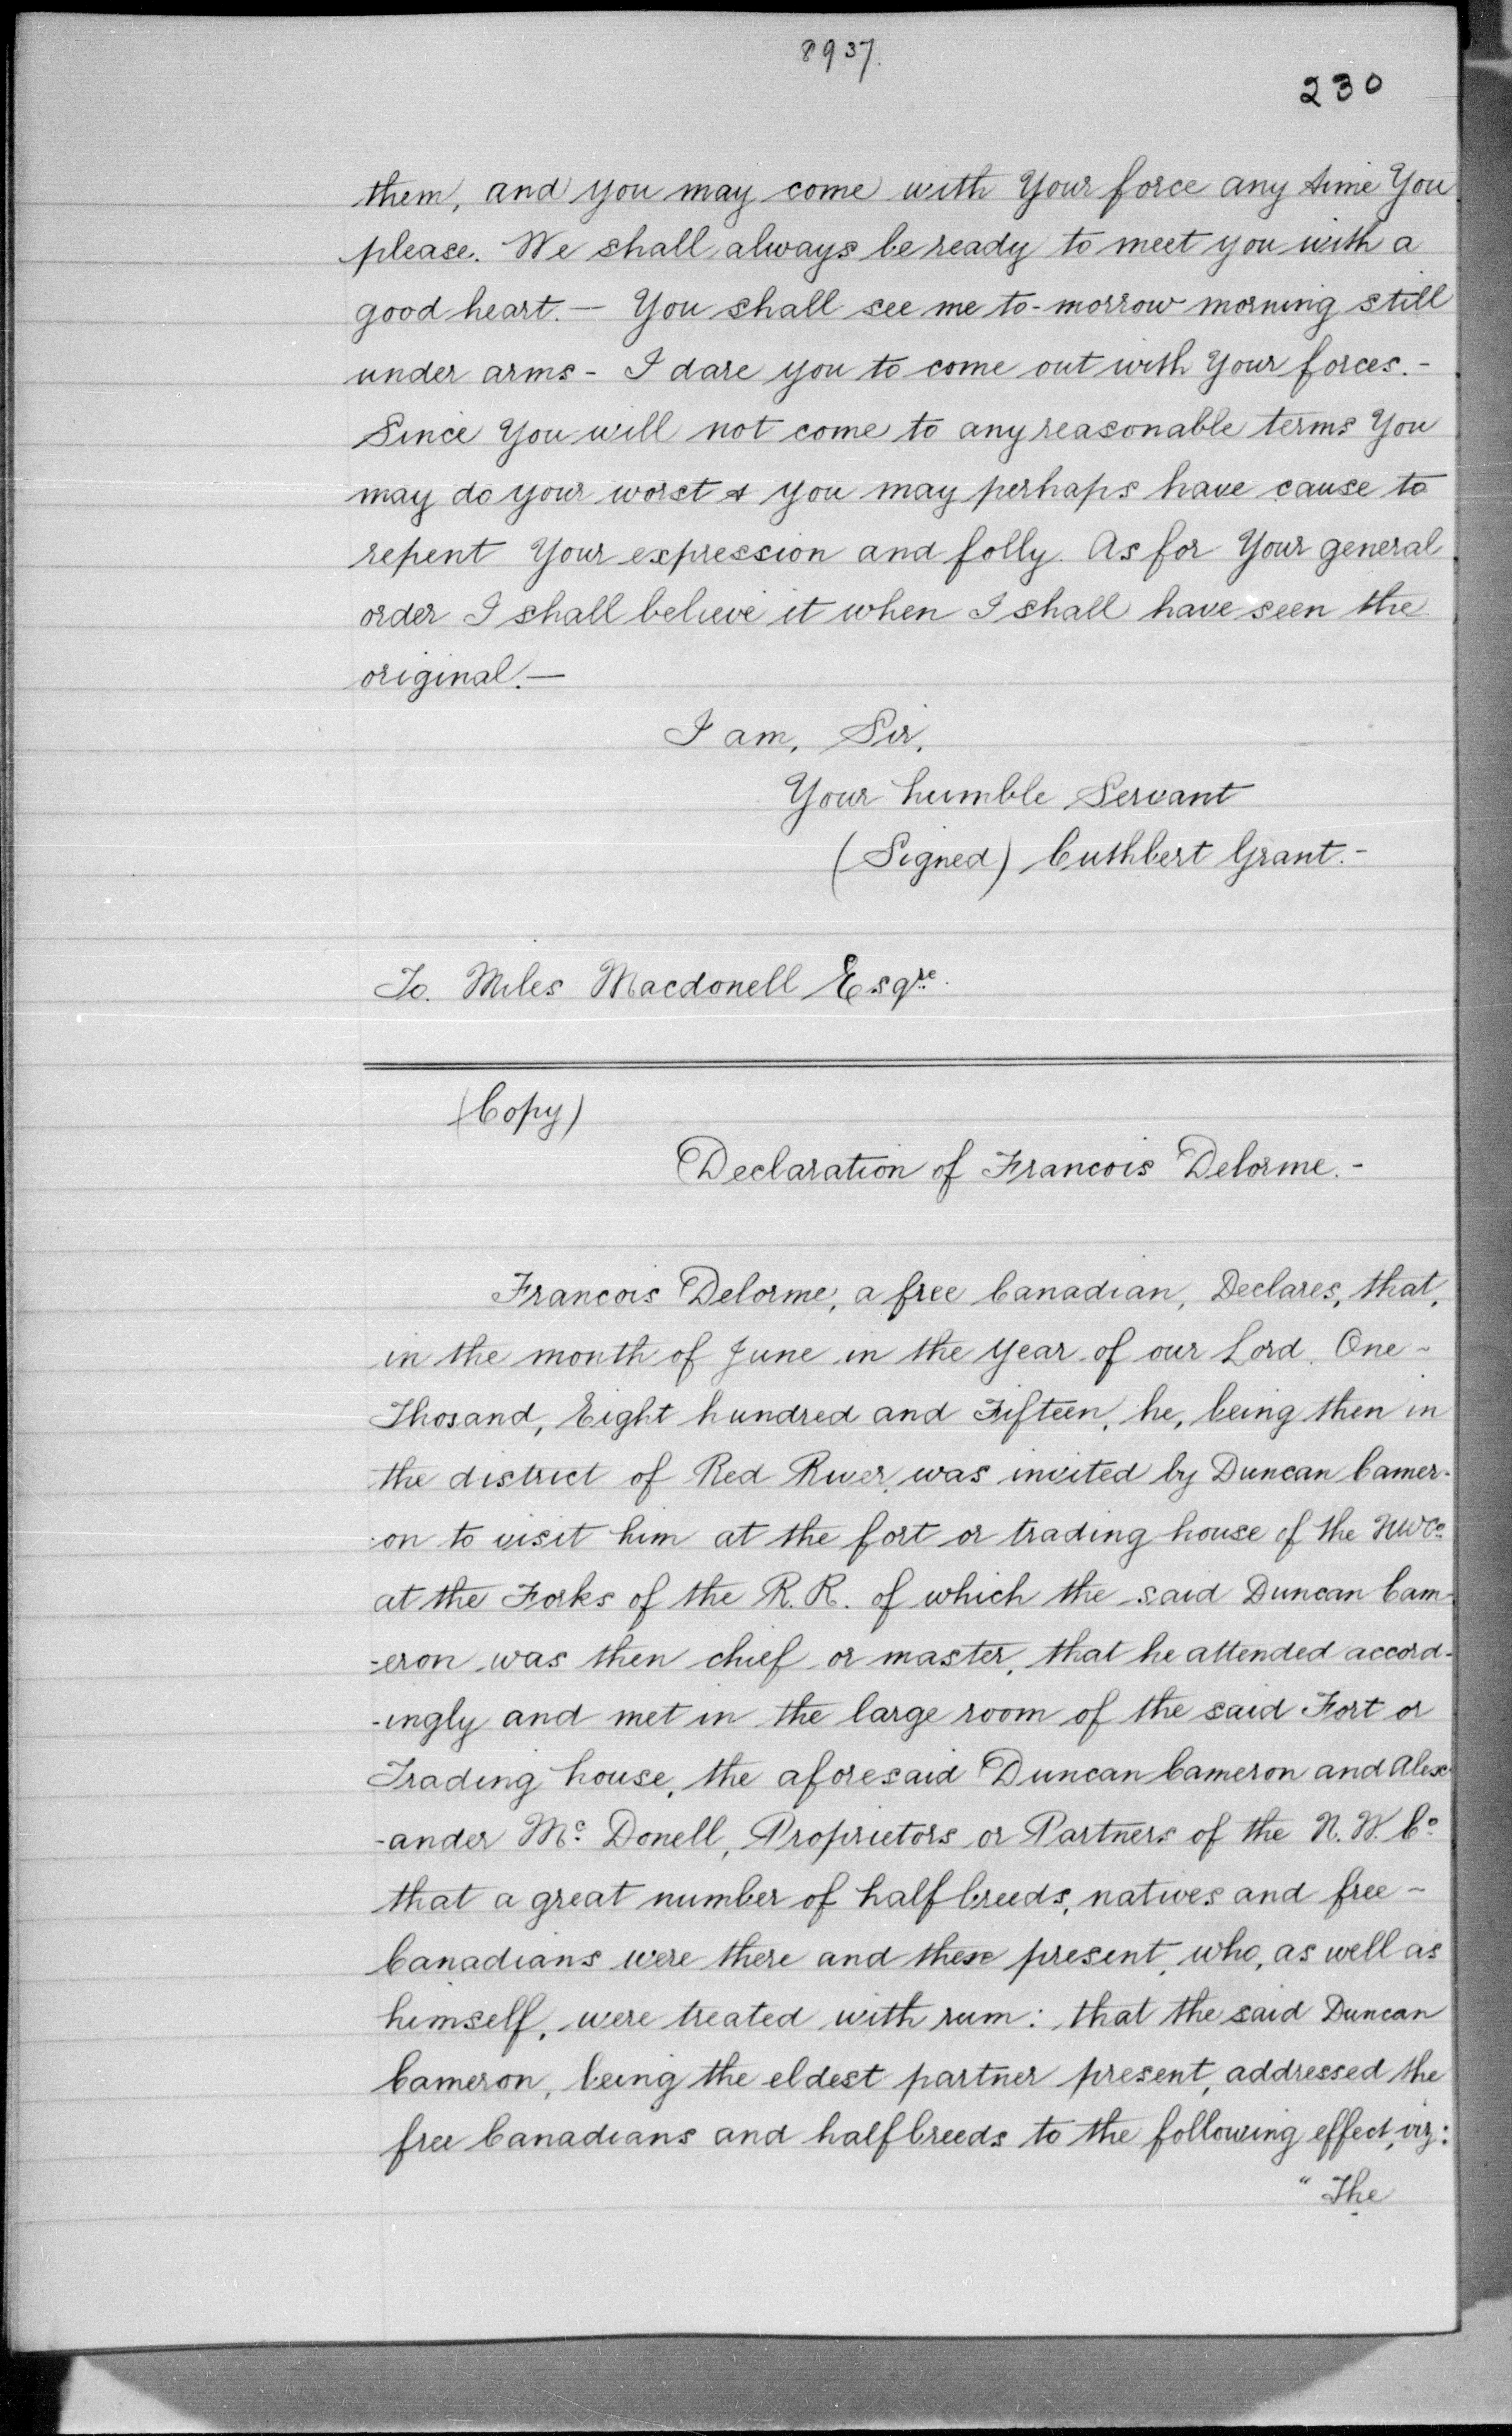 8937.
230
them, and you may come with Your force any time You
please. We shall always be ready to meet you with a
good heart. — You shall see me to-morrow morning still
under arms - I dare you to come out with Your forces. -
Since You will not come to any reasonable terms You
may do your worst & you may perhaps have cause to
repent Your expression and folly. As for Your general
order I shall believe it when I shall have seen the
original. —
I am, Sir,
Your humble Servant
(Signed) Cuthbert Grant. -
To. Miles Macdonell Esqre.
(Copy)
Declaration of Francois Delorme. -
Francois Delorme, a free Canadian, Declares, that,
in the month of June in the Year of our Lord. One -
Thosand, Eight hundred and Fifteen, he, being then in
the district of Red River, was invited by Duncan Camer-
-on to visit him at the fort or trading house of the NWCo
at the Forks of the R.R. of which the said Duncan Cam-
-eron was then chief or master, that he attended accord-
-ingly and met in the large room of the said Fort or
Trading house, the aforesaid Duncan Cameron and Alex-
-ander Mc. Donell, Proprietors or Partners of the N.W. Co
that a great number of half breeds, natives and free -
Canadians were there and these present, who, as well as
himself, were treated with rum: that the said Duncan
Cameron, being the eldest partner present, addressed the
free Canadians and half breeds to the following effect, viz:
"The